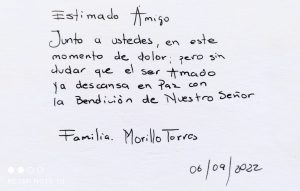 Estimado Amigo
Junto a ustedes, en este
momento de dolor; pero sin
dudar que el ser Amado
ya descansa en Paz con
la Bendición de Nuestro Señor
Familia. Morillo Torres
06/09/2022